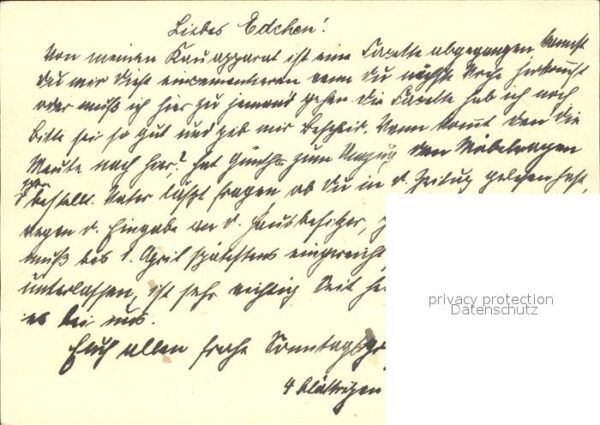 Liebes Edchen!
Von meinen Kauapparat ist eine Facette abgegangen kannst
du mir diese einzementieren wenn du nächste Woche herkommst
oder muß ich hier zu jemand gehen die Facette hab ich noch
bitte sei so gut und gib mir Bescheid. Wann kommt den die
Meute nach hier? hat Günther zum Umzug den Möbelwagen
bestellt. Vater läßt fragen ob du in d. Zeitung gelesen hast
wegen d. Eingabe an d. Hausbesitzer,
muß bis 1. April spätestens eingereicht
unterlassen, ist sehr wichtig Seit
es bei uns.
Euch allen frohe Sonntags
4 blättrigen
privacy protection
Datenschutz